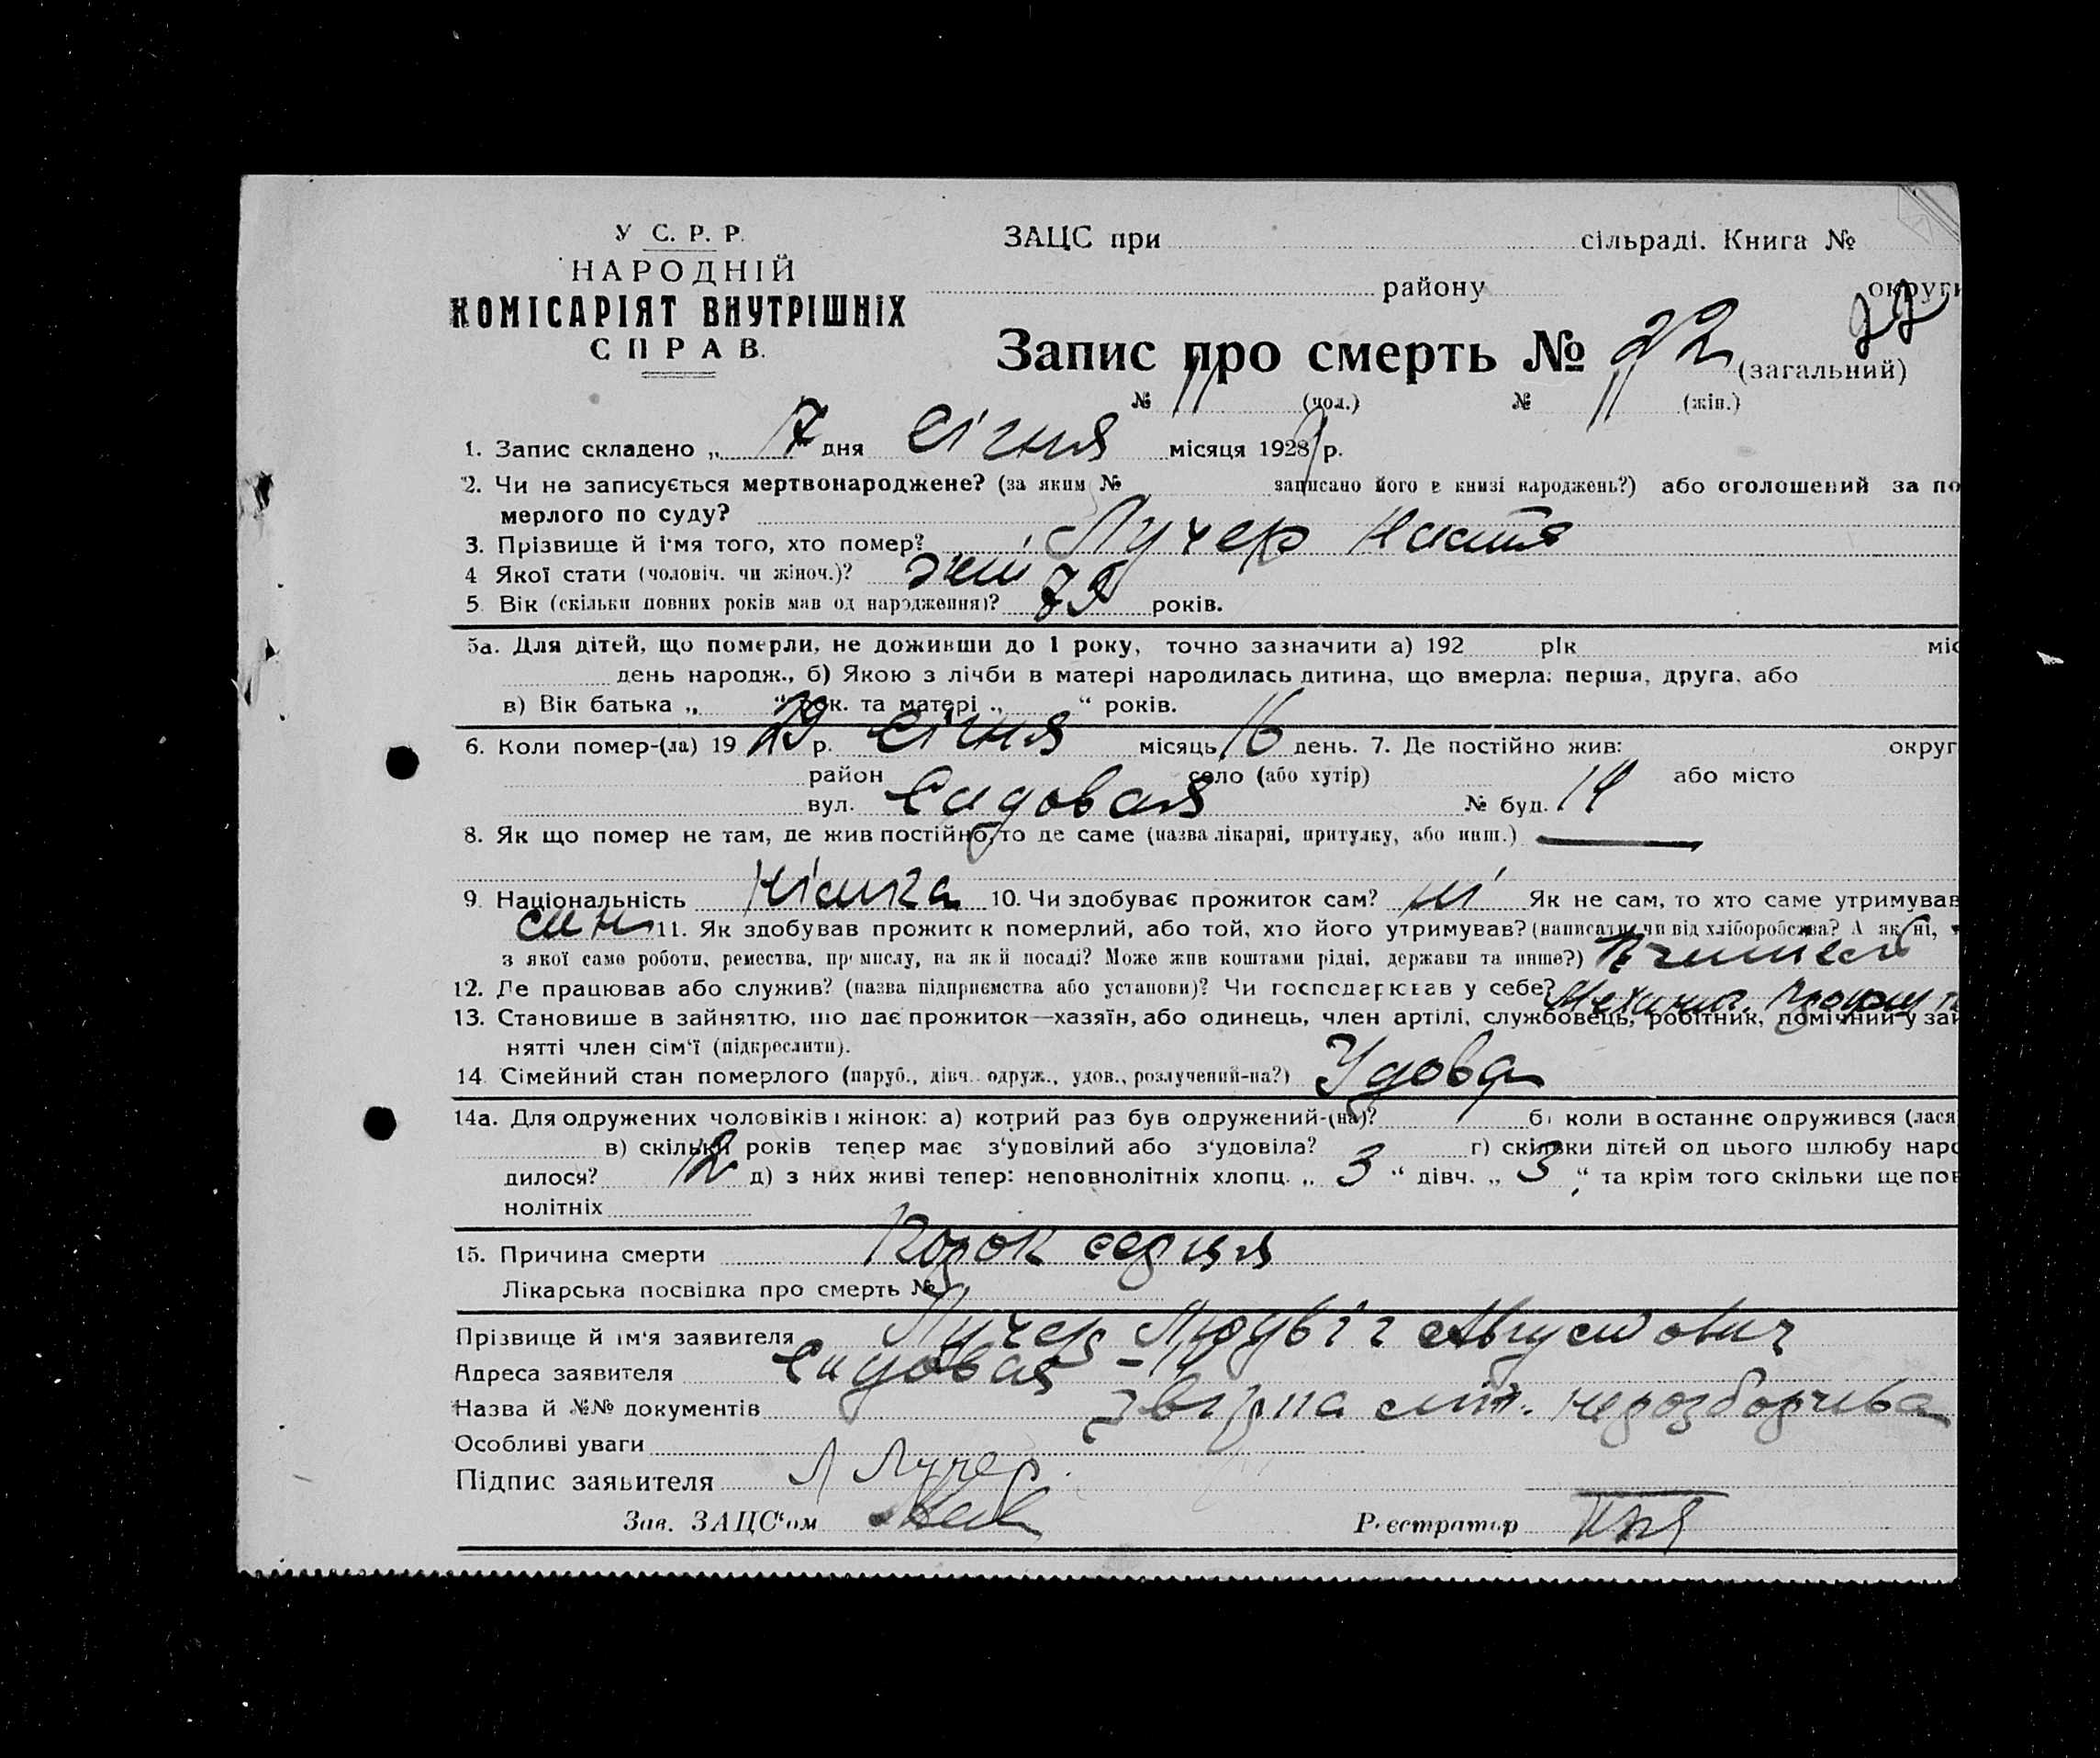 У С. Р. Р.
НАРОДНІЙ
КОМІСАРІЯТ ВНУТРІШНІХ
СПРАВ.
ЗАЦС при сільраді. Книга №
району округи
22
Запис про смерть № 22 (загальний)
№ 11 (чол.) № 11 (жін.)
1. Запис складено „ 7 " дня Січня місяця 1929 р.
2. Чи не записується мертвонароджене? (за яким № записано його в книзі народжень?) або оголошений за по
мерлого по суду?
3. Прізвище й ім'я того, хто помер? Лучер Настя
4 Якої стати (чоловіч. чи жіноч.)? жін
5. Вік (скільки повних років мав од народження)? 75 років.
5а. Для дітей, що померли, не доживши до 1 року, точно зазначити а) 192 рік міс
день народж., б) Якою з лічби в матері народилась дитина, що вмерла: перша, друга, або
в) Вік батька „ “ рок. та матері „ “ років.
6. Коли помер-(ла) 19 29 р. Січня місяць 16 день. 7. Де постійно жив: округ
район село (або хутір) або місто
вул. Садовая № буд. 14
8. Як що помер не там, де жив постійно, то де саме (назва лікарні, притулку, або инш.) —
9. Національність Німка 10. Чи здобуває прожиток сам? ні Як не сам, то хто саме утримував
син 11. Як здобував прожиток померлий, або той, хто його утримував? (написати, чи від хліборобства? А як ні,
з якої саме роботи, ремества, промислу, на якій посаді? Може жив коштами рідні, держави та инше?)
12. Де працював або служив? (назва підприємства або установи)? Чи господарював у себе?
13. Становище в зайняттю, що дає прожиток—хазяїн, або одинець, член артілі, службовець, робітник, помічний у зай
нятті член сім'ї (підкреслити).
14. Сімейний стан померлого (паруб., дівч. одруж., удов., розлучений-на?) Удова
14а. Для одружених чоловіків і жінок: а) котрий раз був одружений-(на)? б) коли в останнє одружився (лася
в) скільки років тепер має з'удовілий або з'удовіла? г) скільки дітей од цього шлюбу наро
дилося? 12 д) з них живі тепер: неповнолітніх хлопц. „ 3 “ дівч. „ 3 “ та крім того скільки ще пов
нолітніх
15. Причина смерти Порок сердця
Лікарська посвідка про смерть №
Прізвище й ім'я заявителя Лучер Людвіг Августович
Адреса заявителя Садовая
Назва й №№ документів нерозборчива
Особливі уваги
Підпис заявителя Л Лучер
Зав. ЗАЦС'ом Реєстратор